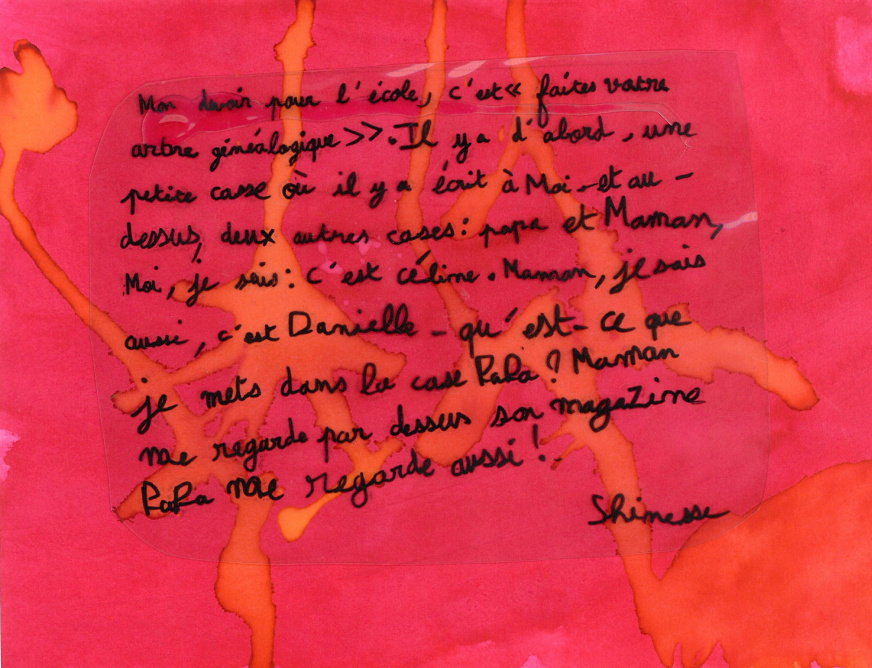 Mon devoir pour l'école, c'est « faites votre
arbre généalogique >>. Il y a d'abord, une
petite casse où il y a écrit à Moi - et au -
dessus, deux autres cases : papa et Maman,
Moi, je sais : c'est céline. Maman, je sais
aussi, c'est Danielle - qu'est-ce que
je mets dans la case PaPa ? Maman
me regarde par dessus son magaZine
PaPa me regarde aussi !
Shinesse